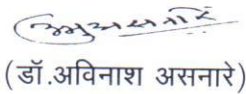 (डॉ.अविनाश असनारे)